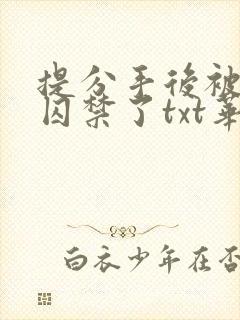 提分手后被
囚禁了txt華
白衣少年在否